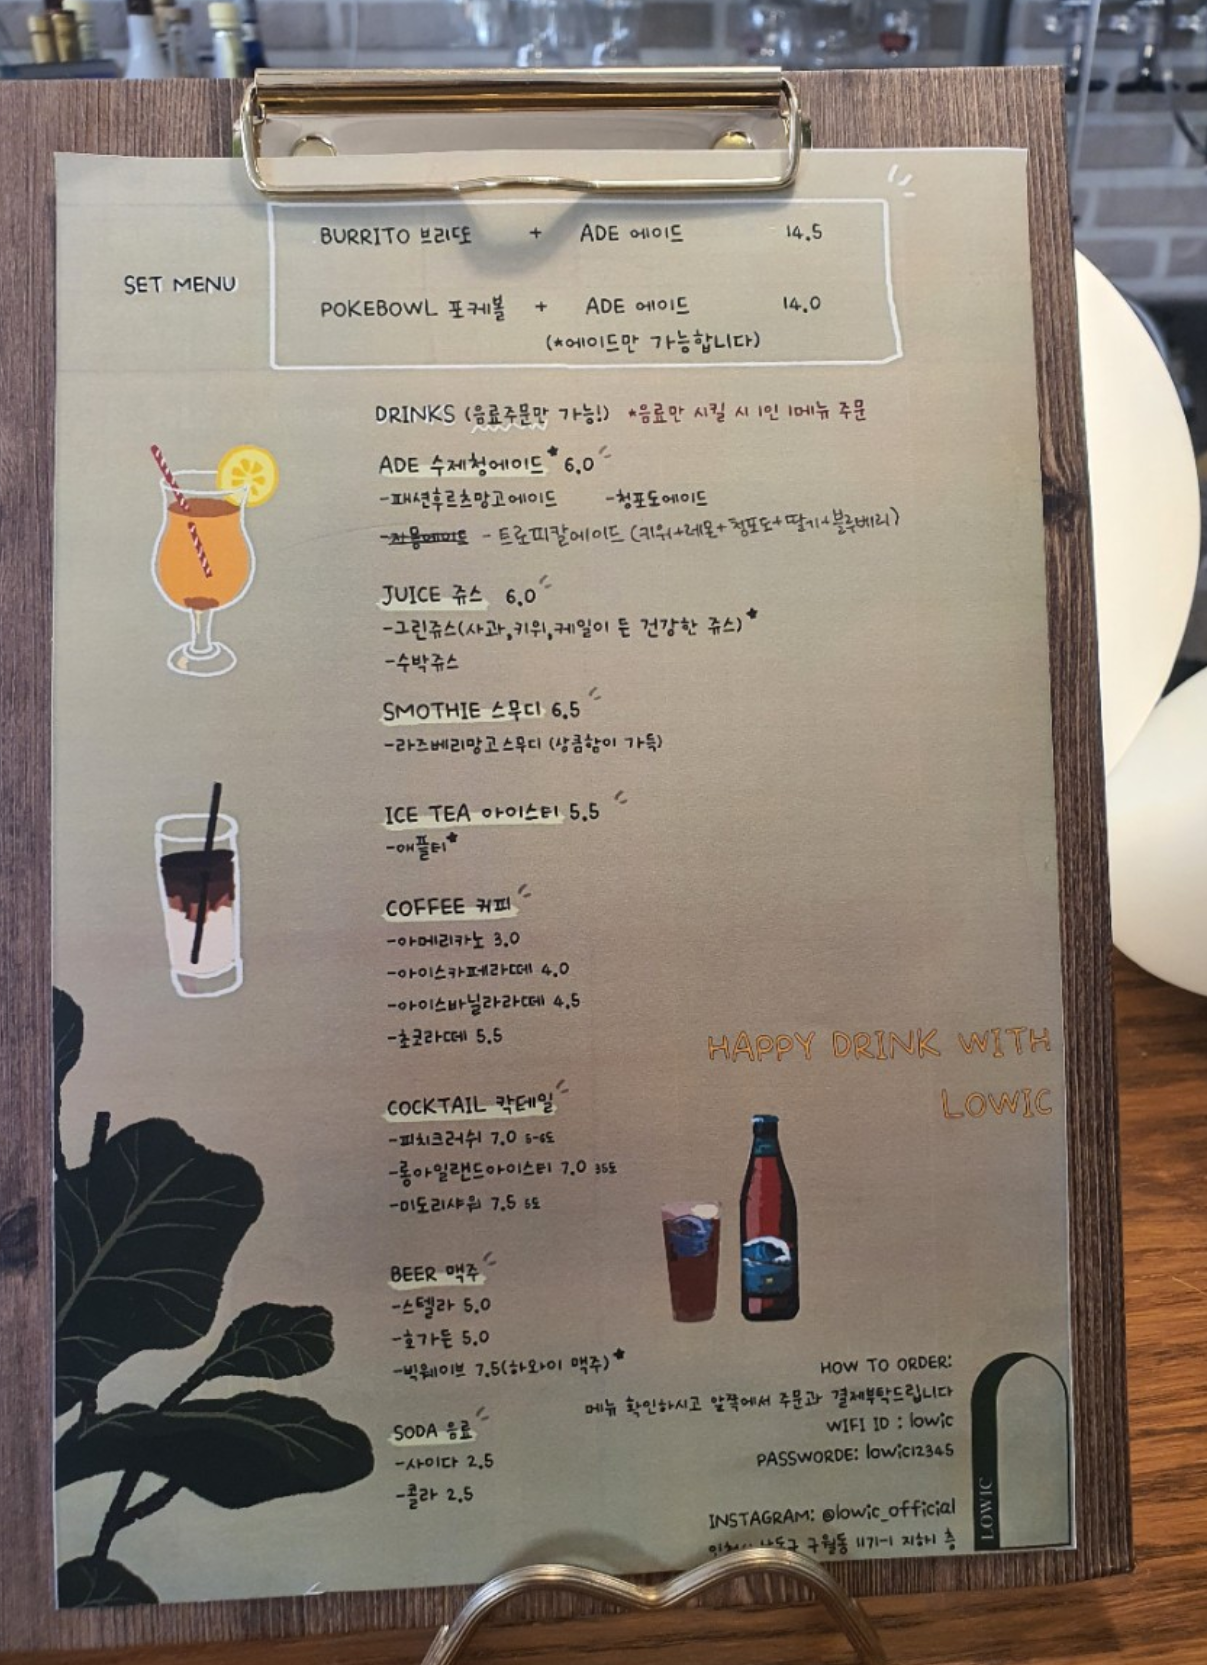 BURRITO 브리또 + ADE 에이드 14.5
SET MENU
POKEBOWL 포케볼 + ADE 에이드 14.0
(*에이드만 가능합니다)
DRINKS (음료주문만 가능!) *음료만 시킬 시 1인 1메뉴 주문
ADE 수제청에이드* 6.0
-패션후르츠망고에이드 -청포도에이드
-자몽에이드 - 트로피칼에이드 (키위+레몬+청포도+딸기+블루베리)
JUICE 쥬스 6.0
-그린쥬스(사과,키위,케일이 든 건강한 쥬스)*
-수박쥬스
SMOTHIE 스무디 6.5
-라즈베리망고스무디 (상큼함이 가득)
ICE TEA 아이스티 5.5
-애플티*
COFFEE 커피
-아메리카노 3.0
-아이스카페라떼 4.0
-아이스바닐라라떼 4.5
-초코라떼 5.5
HAPPY DRINK WITH
LOWIC
COCKTAIL 칵테일
-피치크러쉬 7.0 5-6도
-롱아일랜드아이스티 7.0 35도
-미도리샤워 7.5 5도
BEER 맥주
-스텔라 5.0
-호가든 5.0
-빅웨이브 7.5(하와이 맥주)*
SODA 음료
-사이다 2.5
-콜라 2.5
HOW TO ORDER:
메뉴 확인하시고 앞쪽에서 주문과 결제부탁드립니다
WIFI ID : lowic
PASSWORDE: lowic12345
INSTAGRAM: @lowic_official
구월동 1171-1 지하1 층
LOWIC